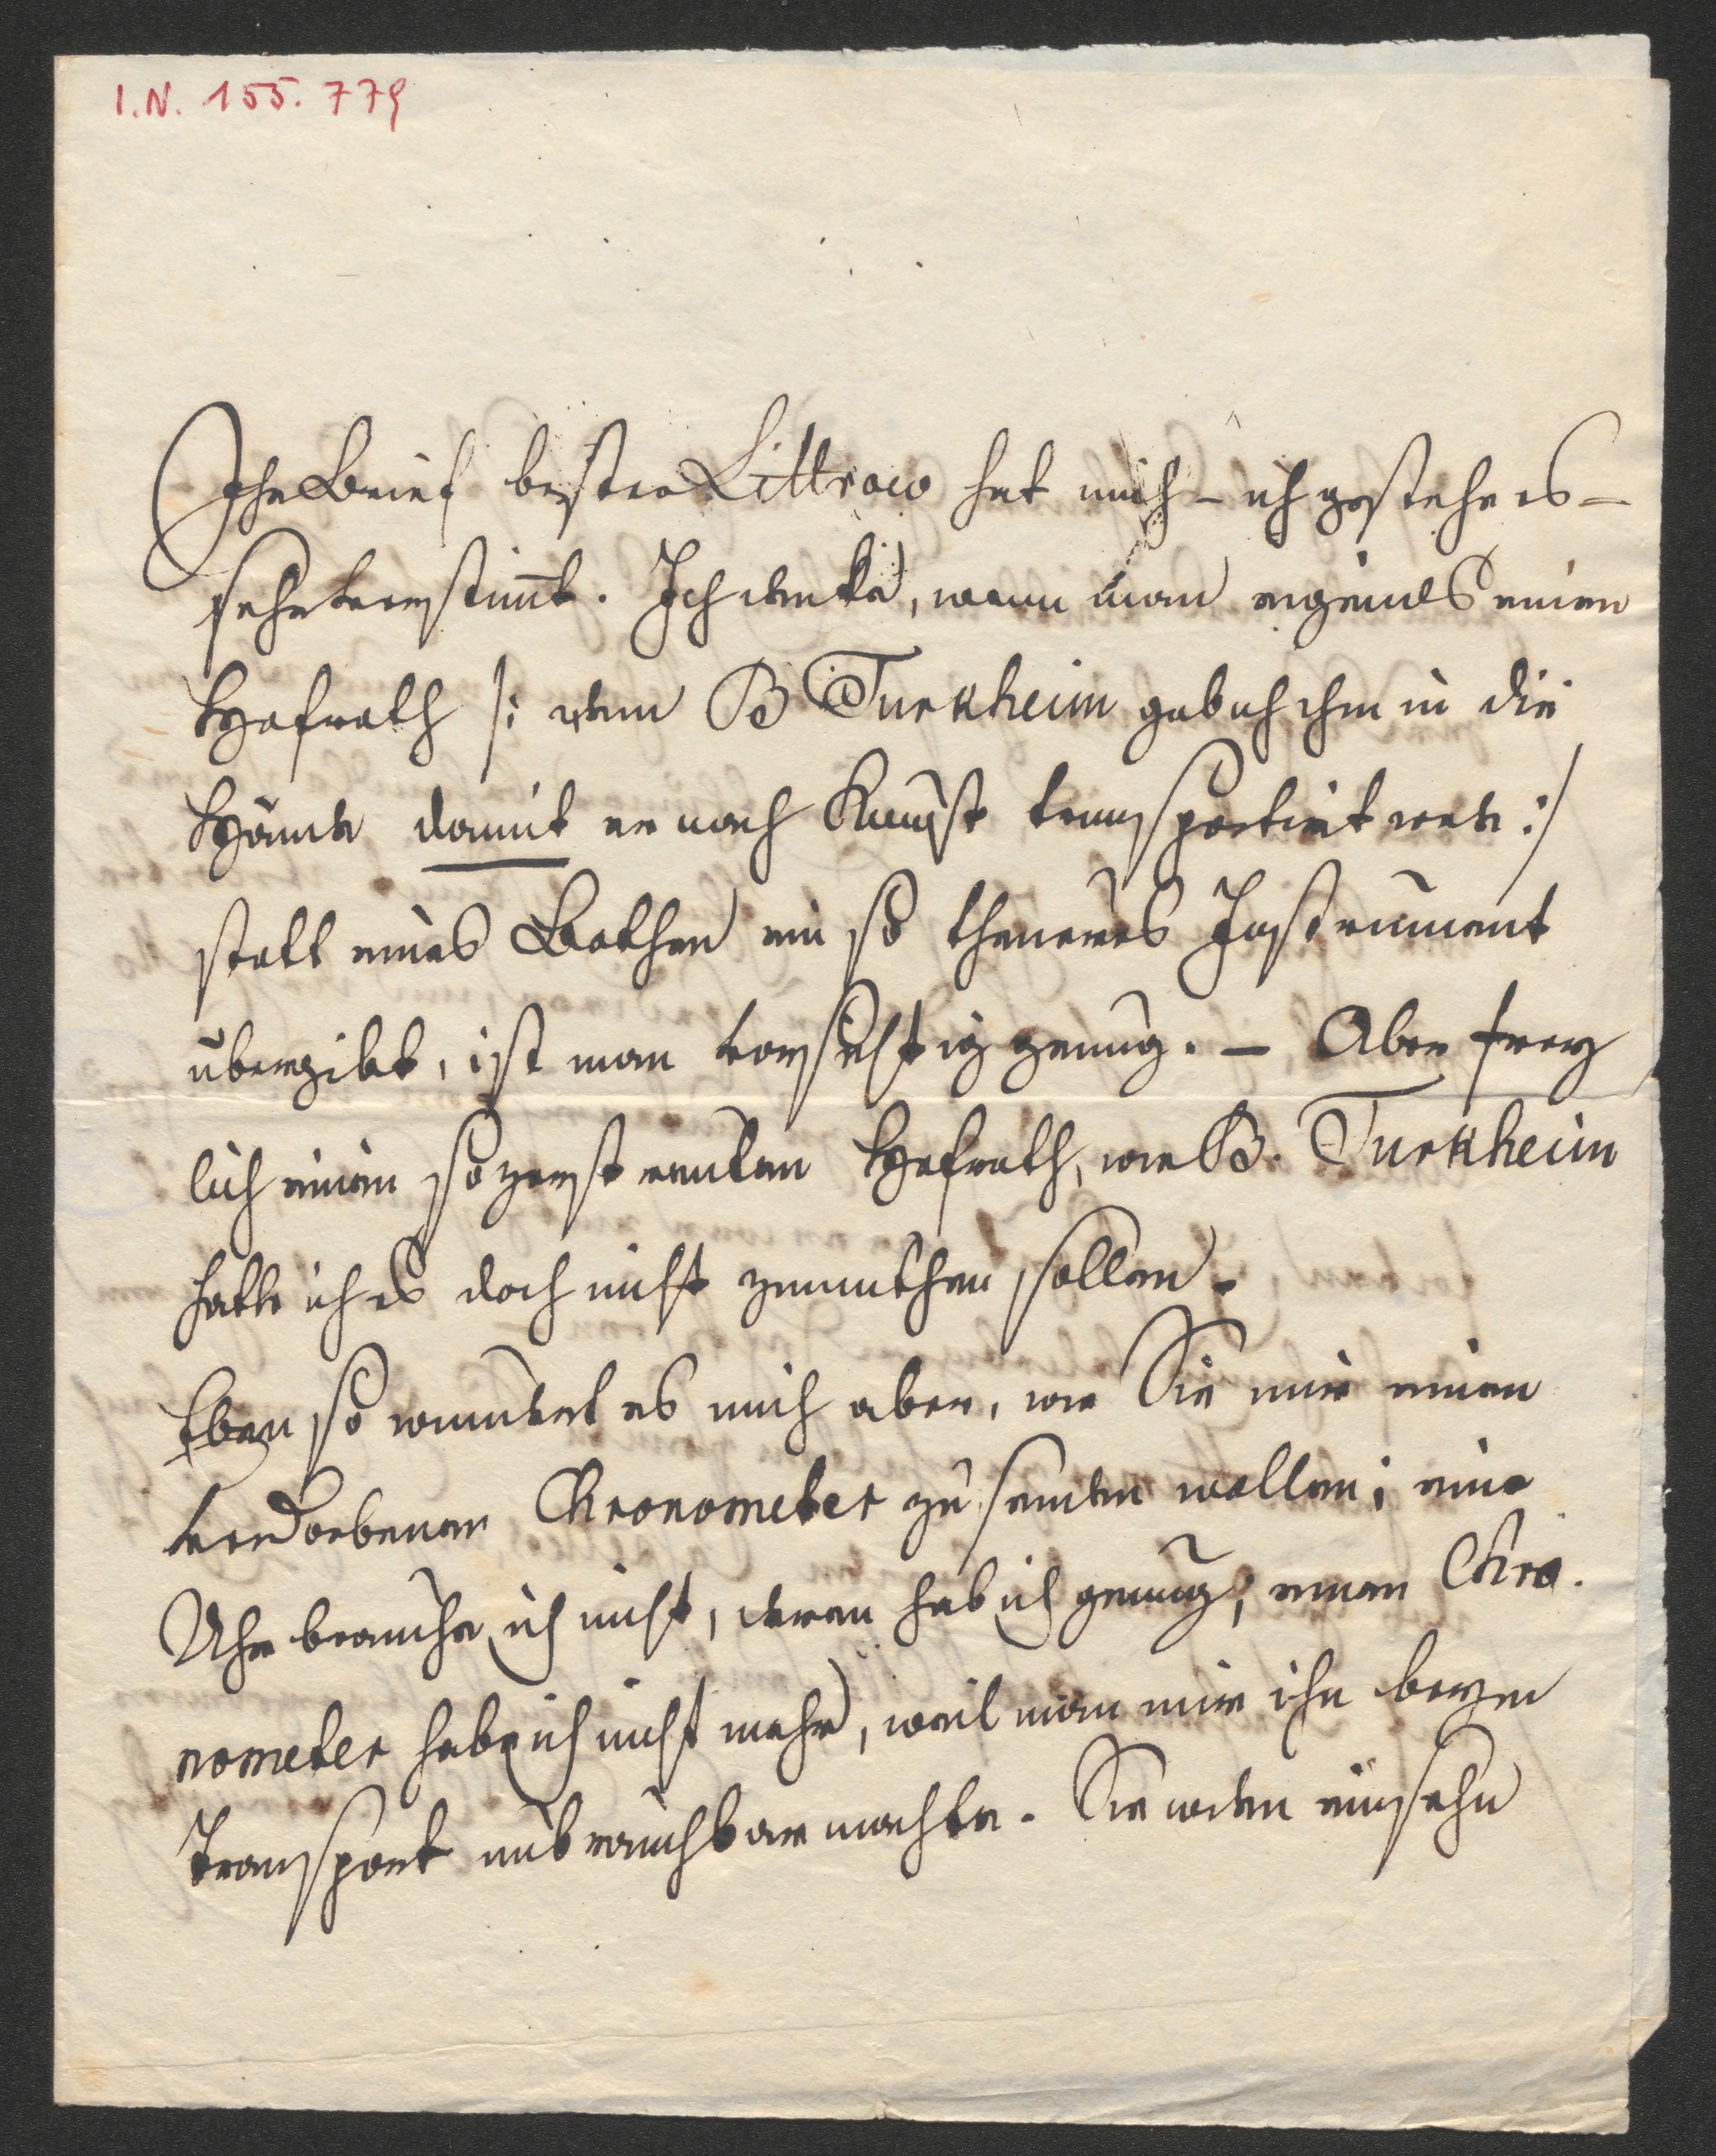 I.N. 155.779
Ihr Brief bester Littrow hat mich – ich gestehe es –
sehr verstim̄t. Ich dachte, wenn man eigends einen
Hofrath /: dem B Turkheim gab ich ihn in die
Hände damit er nach Kunst transportirt werde :/
statt eines Bothen ein so theueres Instrument
übergibt, ist man vorsichtig genug. – Aber frey
lich einem so zerstreuten Hofrath, wie B. Turkheim
hätte ich es doch nicht zumuthen sollen.
Eben so wundert es mich aber, wie Sie mir einen
verdorbenen Chronometer zu senden wollen; eine
Uhr brauche ich nicht, deren hab ich genug; einen Chro.
nometer habe ich nicht mehr, weil man mir ihn beym
Transport unbrauchbar machte. Sie werden einsehn